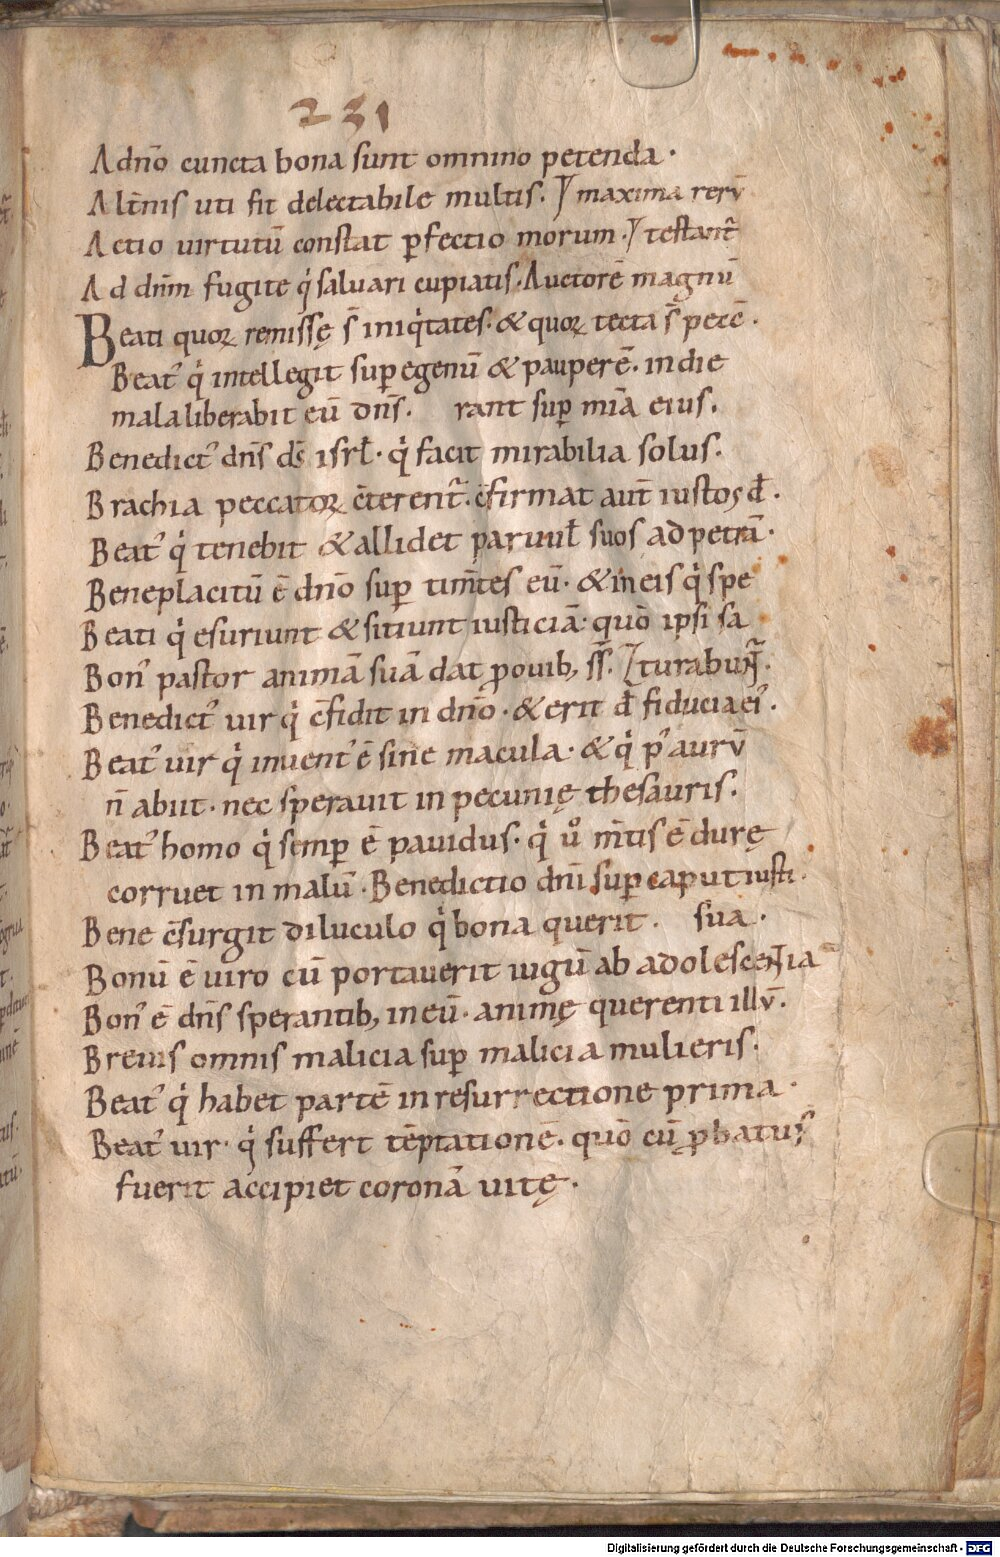 231
A dn̄o cuncta bona sunt omnino petenda·
A lt̄nis uti fit delectabile multis. maxima rerū
A ctio virtutū constat ꝑfectio morum· testant᷑
A d dn̄m fugite qͥ saluari cupiatis· Auctorē magnū
Beati quoꝝ remissę s̄ iniqͥtates· & quoꝝ tecta s̄ peccā·
Beatꝰ qͥ intellegit suꝑ egenū & pauperē· in die
mala liberabit eū dn̄s. rant suꝑ mīa eius.
Benedictꝰ dn̄s ds̄ isrł· qͥ facit mirabilia solus.
Brachia peccatoꝝ c̄terent᷑· c̄firmat aut̄ iustos đ·
Beatꝰ qͥ tenebit & allidet paruuł suos ad petrā·
Beneplacitū ē dn̄o suꝑ tim̄tes eū· & in eis qͥ spe
Beati qͥ esuriunt & sitiunt iusticiā· quō ipsi sa
Bonꝰ pastor animā suā dat ꝓ ouib; ss̄. turabunt᷑·
Benedictꝰ uir qͥ c̄fidit in dn̄o· & erit đ fiducia eiꝰ·
Beatꝰ uir qͥ inuentꝰ ē sine macula· & qͥ pꝰ aurū
n̄ abiit· nec sperauit in pecunię thesauris.
Beatꝰ homo qͥ semꝑ ē pauidus· qͥ uͦ m̄tis ē durę
corruet in malū· Benedictio dn̄i suꝑ caput iusti·
Bene c̄surgit diluculo qͥ bona querit. sua·
Bonū ē uiro cū portauerit iugū ab adolescentia
Bonꝰ ē dn̄s sperantib; in eū· animę querenti illū·
Breuis omnis malicia suꝑ malicia mulieris·
Beatꝰ qͥ habet partē in resurrectione prima·
Beatꝰ uir· qͥ suffert tēptationē· quō cū ꝓbatus
fuerit accipiet coronā uitę·
Digitalisierung gefördert durch die Deutsche Forschungsgemeinschaft - DFG